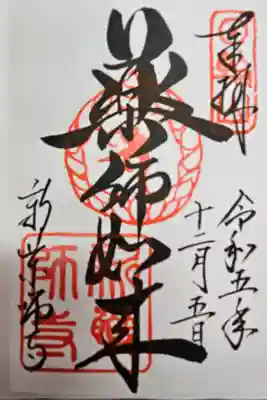 奉拝
令和五年
十二月五日
薬師如来
新薬師寺